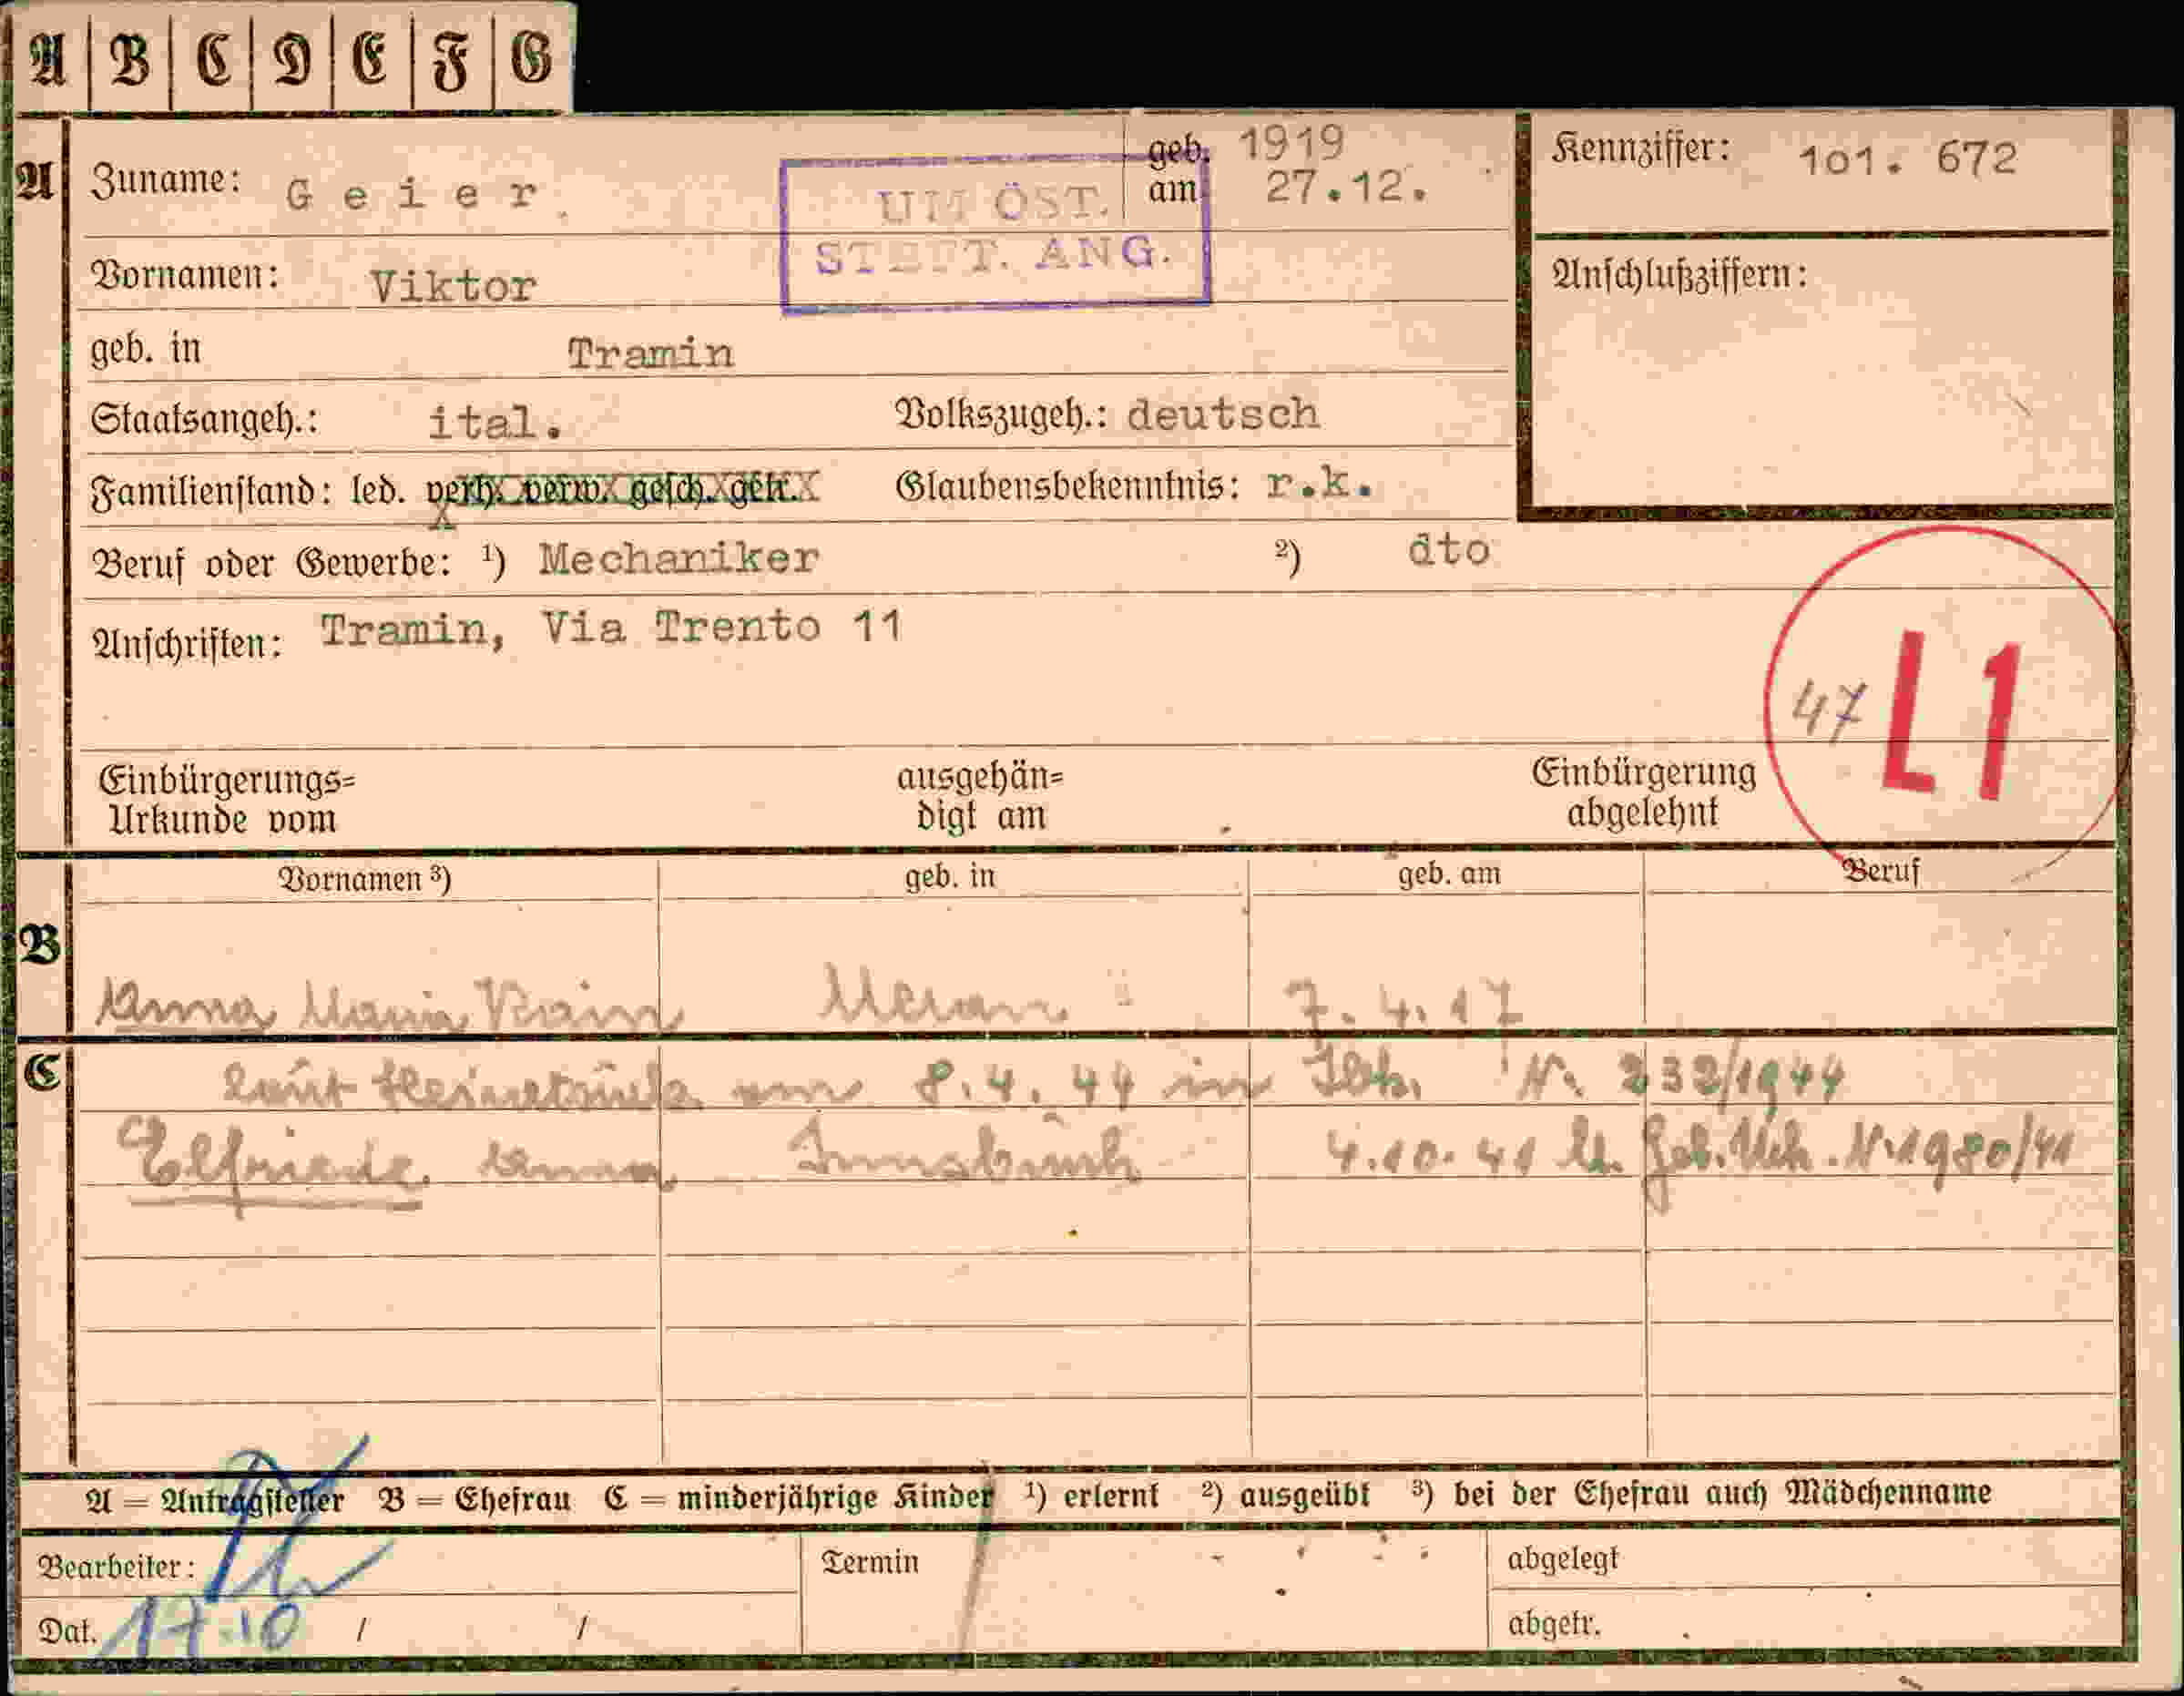 A B C D E F G
A Zuname: Geier geb. am 1919 27.12. Kennziffer: 101. 672
UM ÖST. STEFT. ANG.
Vornamen: Viktor
Anschlußziffern:
geb. in Tramin
Staatsangeh.: ital. Volkszugeh.: deutsch
Familienstand: led. verh. verw. gesch. getr. Glaubensbekenntnis: r.k.
Beruf oder Gewerbe: ¹) Mechaniker ²) dto
Anschriften: Tramin, Via Trento 11
47 L1
Einbürgerungs= ausgehän= Einbürgerung
Urkunde vom digt am abgelehnt
Vornamen ³) geb. in geb. am Beruf
B
Anna Maria Meran 7. 4. 17
C
laut am 8.4.44 in Ibk. Nr. 232/1944
Elfriede Anna Innsbruck 4.10.41 lt. Geb. Urk. Nr. 1980/41
A = Antragsteller B = Ehefrau C = minderjährige Kinder ¹) erlernt ²) ausgeübt ³) bei der Ehefrau auch Mädchenname
Bearbeiter: Termin abgelegt
Dat. 17.10 / / abgetr.